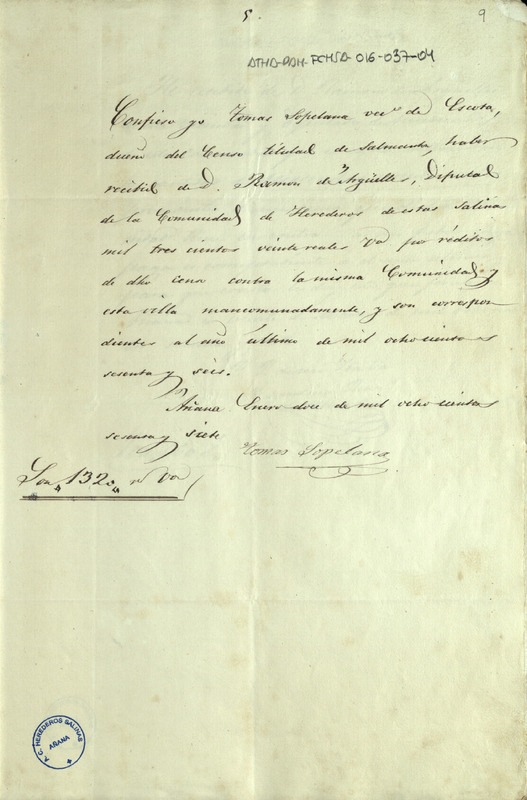 5.
9
ATHA-DAH-FCHSA-016-037-04
Confieso yo Tomas Sopelana vecº de Escota,
dueño del Censo titulad de Salmanta, haber
recibid de D. Ramon de Argüelles, Diputad
de la Comunidad de Herederos de estas Salina
mil trescientos veinte reales Vn por réditos
de dho censo contra la misma Comunidad y
esta villa mancomunadamente, y son correspon
dientes al año último de mil ochocientos
sesenta y séis.
Añana Enero doce de mil ochocientos
sesenta y siete
Tomas Sopelana
Son "1320" rs Vn
A.C. HEREDEROS SALINAS
AÑANA